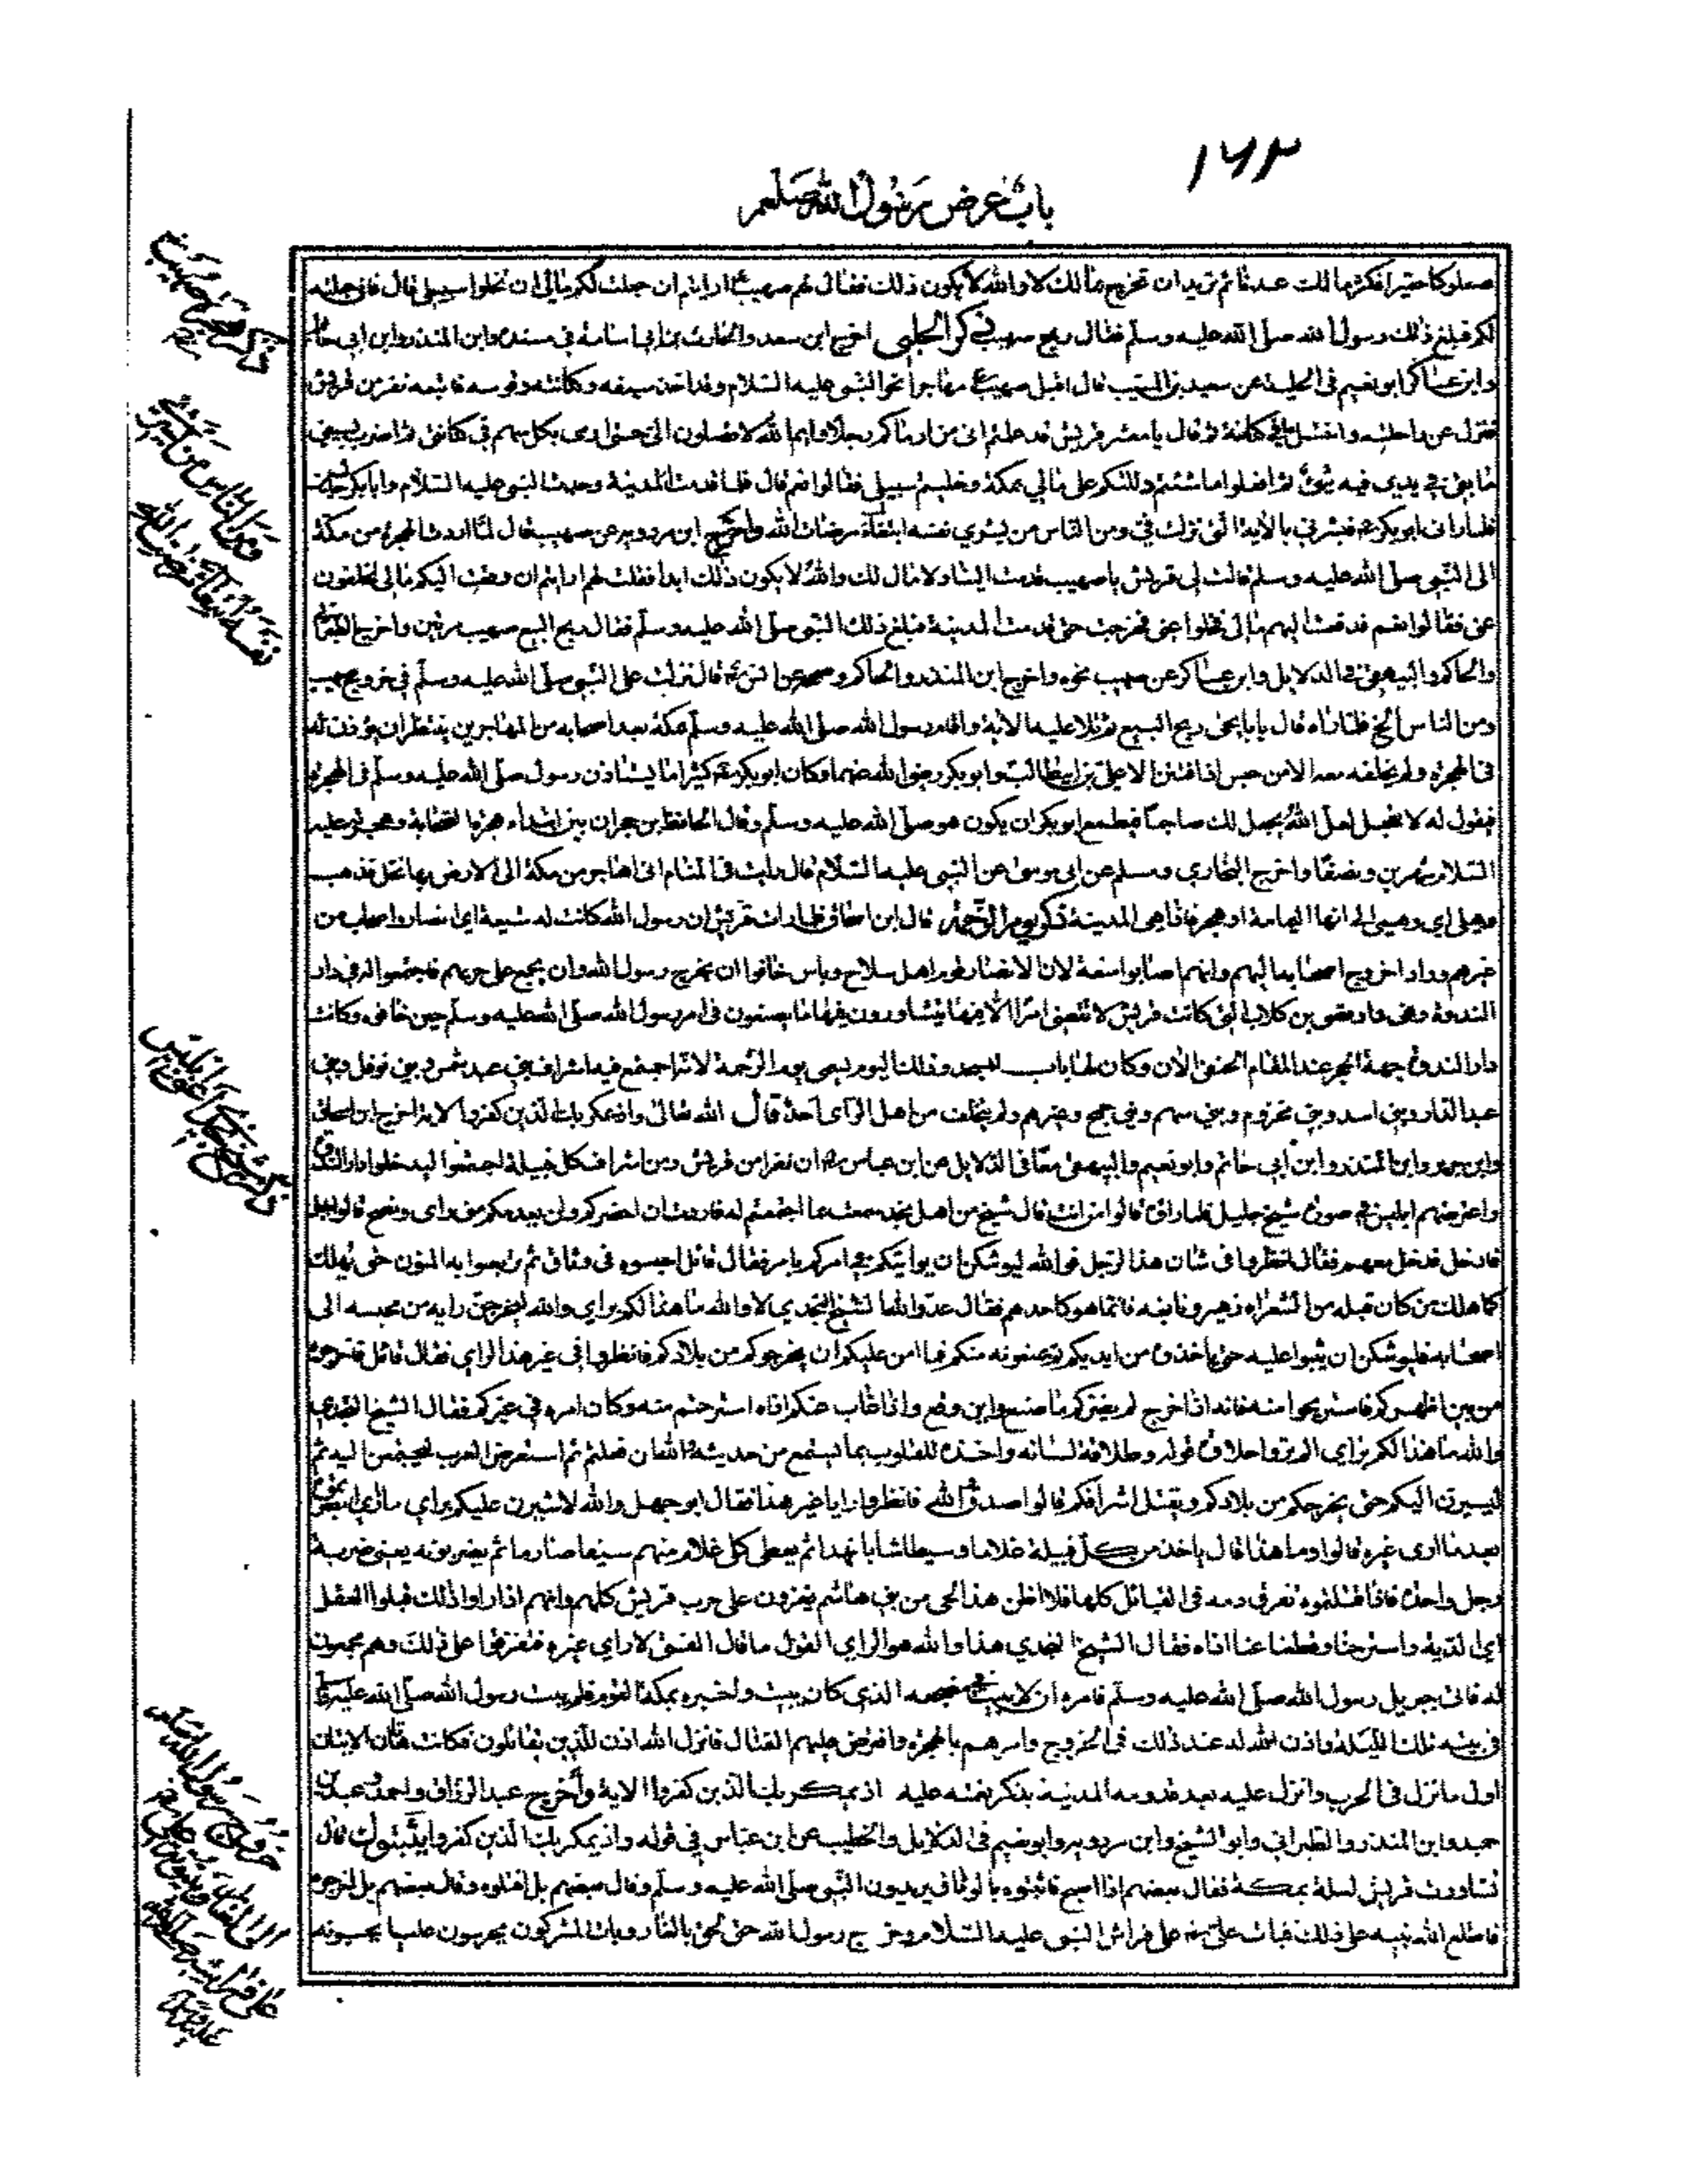 ١٦٢
باب عرض رسول الله صلعم
صعلوكا حقيرا فكثر مالك عندنا ثم تريد ان تخرج مالك لا والله لا يكون ذلك فقال لهم صهيب ارايتم ان جعلت لكم مالي ان تخلوا سبيلي قال فاني جعلته
لكم فبلغ ذلك رسول الله صلى الله عليه وسلم فقال ربح صهيب اخرج ابن سعد والحارث بن ابي اسامة في مسنده وابن المنذر وابن ابي حاتم
وابن عساكر ابو نعيم في الحلية عن سعيد بن المسيب قال اقبل صهيب مهاجرا نحو النبي عليه السلام وقد اخذ سيفه وكنانته وقوسه فاتبعه نفر من قريش
فنزل عن راحلته وانتثل ما في كنانة ثم قال يا معشر قريش قد علمتم اني من ارماكم رجلا وايم الله لا تصلون الي حتى ارمى بكل سهم في كنانتي ثم اضرب بسيفي
ما بقي في يدي فيه شئ ثم افعلوا ما شئتم دللتكم على مالي بمكة وخليتم سبيلي فقالوا نعم قال فلما قدمت المدينة وجدت النبي عليه السلام وابا بكر
فلما راني ابو بكر فبشرني بالاية التي نزلت في ومن الناس من يشري نفسه ابتغاء مرضات الله واخرج ابن مردويه عن صهيب قال لما اردت الهجرة من مكة
الى النبي صلى الله عليه وسلم قالت لي قريش يا صهيب قدمت الينا ولا مال لك والله لا يكون ذلك ابدا فقلت لهم ارايتم ان دفعت اليكم مالي تخلون
عني فقالوا نعم فدفعت اليهم مالي فخلوا عني فخرجت حتى قدمت المدينة فبلغ ذلك النبي صلى الله عليه وسلم فقال ربح البيع صهيب مرتين واخرج الطبراني
والحاكم والبيهقي في الدلايل وابن عساكر عن صهيب نحوه واخرج ابن المنذر والحاكم وصححه عن انس قال نزلت على النبي صلى الله عليه وسلم في خروج صهيب
ومن الناس الخ فلما راه قال يا ابا يحيى ربح البيع ثم تلا عليه الاية واقام رسول الله صلى الله عليه وسلم بمكة بعد اصحابه من المهاجرين ينتظر ان يؤذن له
في الهجرة ولم يتخلف معه الا من حبس او افتتن الا علي بن ابي طالب وابو بكر رضي الله عنهما وكان ابو بكر كثيرا ما يستاذن رسول صلى الله عليه وسلم في الهجرة
فيقول له لا تعجل لعل الله يجعل لك صاحبا فيطمع ابو بكر ان يكون هو صلى الله عليه وسلم وقال الحافظ بن حجر ان بين ابتداء هجرة الصحابة وهجرته عليه
السلام شهرين ونصفا واخرج البخاري ومسلم عن ابي موسى عن النبي عليه السلام قال رايت في المنام اني اهاجر من مكة الى الارض بها نخل فذهب
وهلي اي وهمي الى انها اليمامة او هجر فاذا هي المدينة ذكر يوم الزحمة قال ابن اسحاق فلما رات قريش ان رسول الله كانت له شيعة اي انصار واصحاب من
غيرهم وراوا خروج اصحابه اليهم وانهم اصابوا منعة لان الانصار قوم اهل سلاح وباس خافوا ان يخرج رسول الله وان يجمع على حربهم فاجتمعوا له في دار
الندوة وهي دار قصي بن كلاب التي كانت قريش لا تقضي امرا الا فيها يتشاورون فيها ما يصنعون في امر رسول الله صلى الله عليه وسلم حين خافوه وكانت
دار الندوة جهة الحجر عند المقام الحنفي الان وكان لها باب المسجد وذلك اليوم يسمى يوم الزحمة لانه اجتمع فيه اشراف بني عبد شمس وبني نوفل وبني
عبد الدار وبني اسد وبني مخزوم وبني سهم وبني جمح وغيرهم ولم يتخلف من اهل الراي احد قال الله تعالى واذ يمكر بك الذين كفروا الاية اخرج ابن اسحاق
وابن جرير وابن المنذر وابن ابي حاتم وابو نعيم والبيهقي معا في الدلايل عن ابن عباس ان نفرا من قريش ومن اشراف كل قبيلة اجتمعوا ليدخلوا دار الندوة
واعترضهم ابليس في صورة شيخ جليل فلما راوه قالوا من انت قال شيخ من اهل نجد سمعت بما اجتمعتم له فاردت ان احضركم ولن يعدمكم مني راى ونصح قالوا اجل
فادخل فدخل معهم فقال انظروا في شان هذا الرجل فوالله ليوشكن ان يواتيكم في امركم بامر فقال قائل احبسوه في وثاق ثم تربصوا به المنون حتى يهلك
كما هلك من كان قبله من الشعراء زهير ونابغه فانما هو كاحدهم فقال عدو الله الشيخ النجدي لا والله ما هذا لكم براي والله ليخرجن رايه من محبسه الى
اصحابه فليوشكن ان يثبوا عليه حتى ياخذوه من ايديكم ثم يمنعونه منكم فما امن عليكم ان يخرجوكم من بلادكم فانظروا في غير هذا الراي فقال قائل فاخرجوه
من بين اظهركم فاستريحوا منه فانه اذا خرج لم يضركم ما صنع واين وقع واذا غاب عنكم اذاه استرحتم منه وكان امره في غيركم فقال الشيخ النجدي
والله ما هذا لكم براي الم تروا حلاوة قوله وطلاقة لسانه واخذه للقلوب بما يستمع من حديثه والله لئن فعلتم ثم استعرض العرب لتجتمعن اليه ثم
ليسيرن اليكم حتى يخرجكم من بلادكم ويقتل اشرافكم قالوا صدق والله فانظروا رايا غير هذا فقال ابو جهل والله لاشيرن عليكم براي ما ارى
بعد ما ارى غيره قالوا وما هذا قال ياخذ من كل قبيلة غلاما وسيطا شابا نهدا ثم يعطى كل غلام منهم سيفا صارما ثم يضربونه يعني ضربة
رجل واحد فاذا قتلتموه تفرق دمه في القبائل كلها فلا اظن هذا الحي من بني هاشم يقوون على حرب قريش كلهم وانهم اذا راوا ذلك قبلوا العقل
اي الدية واسترحنا وقطعنا عنا اذاه فقال الشيخ النجدي هذا والله هو الراي القول ما قال الفتى لا راي غيره فتفرقوا على ذلك وهم مجمعون
له فاتى جبريل رسول الله صلى الله عليه وسلم فامره ان لا يبيت في مضجعه الذي كان يبيت واخبره بمكر القوم فلم يبت رسول الله صلى الله عليه وسلم
في بيته تلك الليلة واذن الله له عند ذلك في الخروج وامرهم بالهجرة وافترض عليهم القتال فانزل الله اذن للذين يقاتلون فكانت هتان الايتان
اول ما نزل في الحرب وانزل عليه بعد قدومه المدينة يذكر نعمته عليه اذ يمكر بك الذين كفروا الاية واخرج عبد الرزاق واحمد وعبد بن
حميد وابن المنذر والطبراني وابو الشيخ وابن مردويه وابو نعيم في الدلايل والخطيب عن ابن عباس في قوله واذ يمكر بك الذين كفروا ليثبتوك قال
تشاورت قريش ليلة بمكة فقال بعضهم اذا اصبح فاثبتوه بالوثاق يريدون النبي صلى الله عليه وسلم وقال بعضهم بل اقتلوه وقال بعضهم بل اخرجوه
فاطلع الله نبيه على ذلك فبات علي على فراش النبي عليه السلام وخرج رسول الله حتى لحق بالغار وبات المشركون يحرسون عليا يحسبونه
ومن الناس من يشري
نفسه ابتغاء مرضات الله
خروج رسول الله